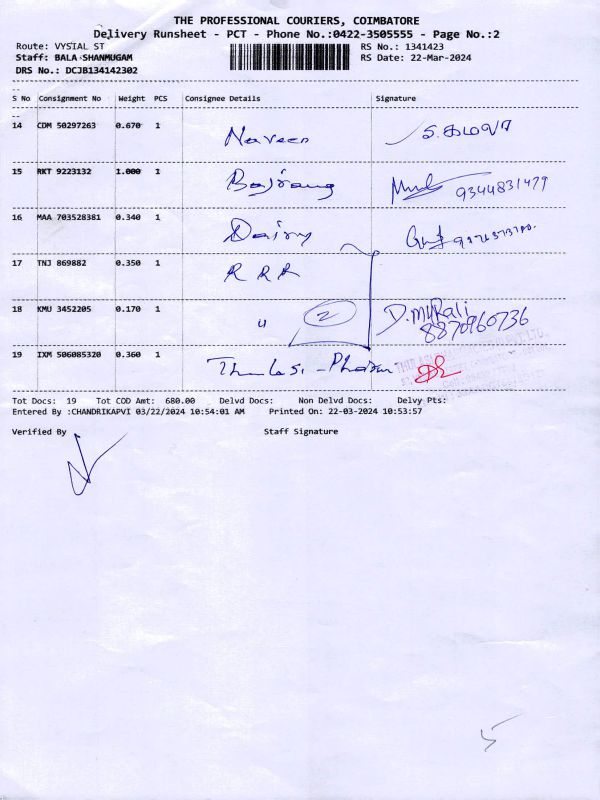 THE PROFESSIONAL COURIERS, COIMBATORE
Delivery Runsheet - PCT - Phone No.:0422-3505555 - Page No.:2
Route: VYSIAL ST RS No.: 1341423
Staff: BALA SHANMUGAM RS Date: 22-Mar-2024
DRS No.: DCJB134142302
S No Consignment No Weight PCS Consignee Details Signature
14 CDM 50297263 0.670 1 Naveen
15 RKT 9223132 1.000 1 Bajrang 9344831479
16 MAA 703528381 0.340 1 Dairy
17 TNJ 869882 0.350 1 R R R
18 KMU 3452205 0.170 1 " 2 D. Murali
8870960736
19 IXM 506085320 0.360 1 Thulasi - Pharma
Tot Docs: 19 Tot COD Amt: 680.00 Delvd Docs: Non Delvd Docs: Delvy Pts:
Entered By :CHANDRIKAPVI 03/22/2024 10:54:01 AM Printed On: 22-03-2024 10:53:57
Verified By Staff Signature